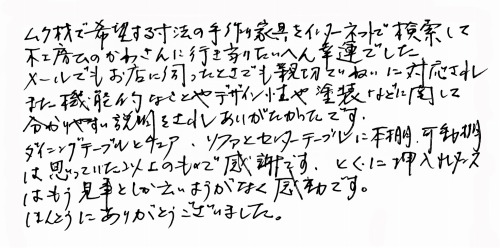 ムク材で希望する寸法の手作り家具をインターネットで検索して
木工房ひのかわさんに行き当りたいへん幸運でした
メールでもお店に伺ったときでも親切ていねいに対応され
また機能的なことやデザイン性や塗装などに関して
分かりやすい説明をされありがたかったです。
ダイニングテーブルとチェア、ソファとセンターテーブルに本棚、可動棚
は思っていた以上のもので感謝です。とくに押入れタンス
はもう見事としか言いようがなく感動です。
ほんとうにありがとうございました。